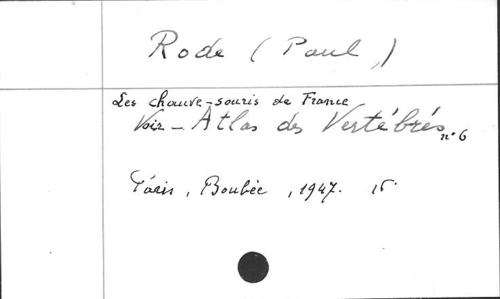 Rode (Paul,)
Les chauve-souris de France
Voir - Atlas des Vertébrés n° 6
Paris, Boubée, 1947.